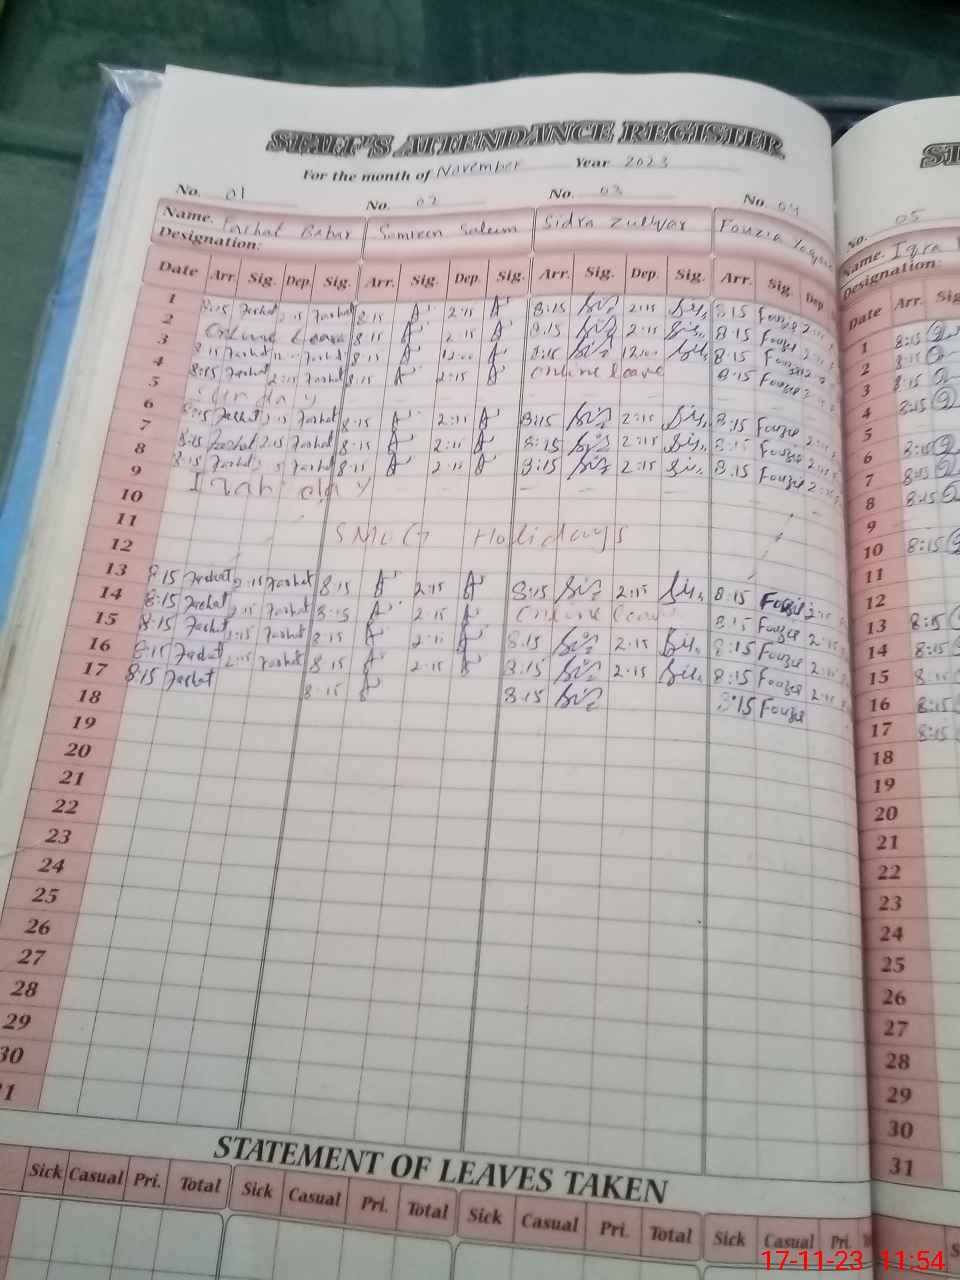 STAFF'S ATTENDANCE REGISTER
For the month of November Year 2023
No. 01 No. 02 No. 03 No. 04
Name. Farhat Babar Samreen Saleem Sidra Zulfqar Fouzia
Designation:
Date Arr. Sig. Dep. Sig. Arr. Sig. Dep. Sig. Arr. Sig. Dep. Sig. Arr. Sig. Dep
1 8:15 Farhat 2:15 Farhat 8:15 2:15 8:15 2:15 8:15 Fouzia 2:15
2 Online Leave 8:15 2:15 8:15 2:15 8:15 Fouzia
3 8:15 Farhat 12:00 Farhat 8:15 12:00 8:15 12:00 8:15 Fouzia
4 8:15 Farhat 2:15 Farhat 8:15 2:15 Online leave 8:15 Fouzia
5 Sunday
6 8:15 Farhat 2:15 Farhat 8:15 2:15 8:15 2:15 8:15 Fouzia 2:15
7 8:15 Farhat 2:15 Farhat 8:15 2:15 8:15 2:15 8:15 Fouzia 2:15
8 8:15 Farhat Farhat 8:15 2:15 8:15 2:15 8:15 Fouzia 2:15
9 Iqbal day
10
11 SMOG Holidays
12
13 8:15 Farhat 2:15 Farhat 8:15 2:15 8:15 2:15 8:15 Fouzia 2:15
14 8:15 Farhat 2:15 Farhat 8:15 2:15 Online leave 8:15 Fouzia 2:15
15 8:15 Farhat 2:15 Farhat 8:15 2:15 8:15 2:15 8:15 Fouzia 2:15
16 8:15 Farhat 2:15 Farhat 8:15 2:15 8:15 2:15 8:15 Fouzia 2:15
17 8:15 Farhat 8:15 8:15 8:15 Fouzia
18
19
20
21
22
23
24
25
26
27
28
29
30
STATEMENT OF LEAVES TAKEN
Sick Casual Pri. Total Sick Casual Pri. Total Sick Casual Pri. Total Sick Casual Pri.
No. 05
Name. Iqra
Designation:
Date Arr.
1 8:15
2 8:15
3 8:15
4 8:15
5
6 8:15
7 8:15
8 8:15
9
10 8:15
11
12
13 8:15
14 8:15
15 8:15
16 8:15
17 8:15
18
19
20
21
22
23
24
25
26
27
28
29
30
31
17-11-23 11:54